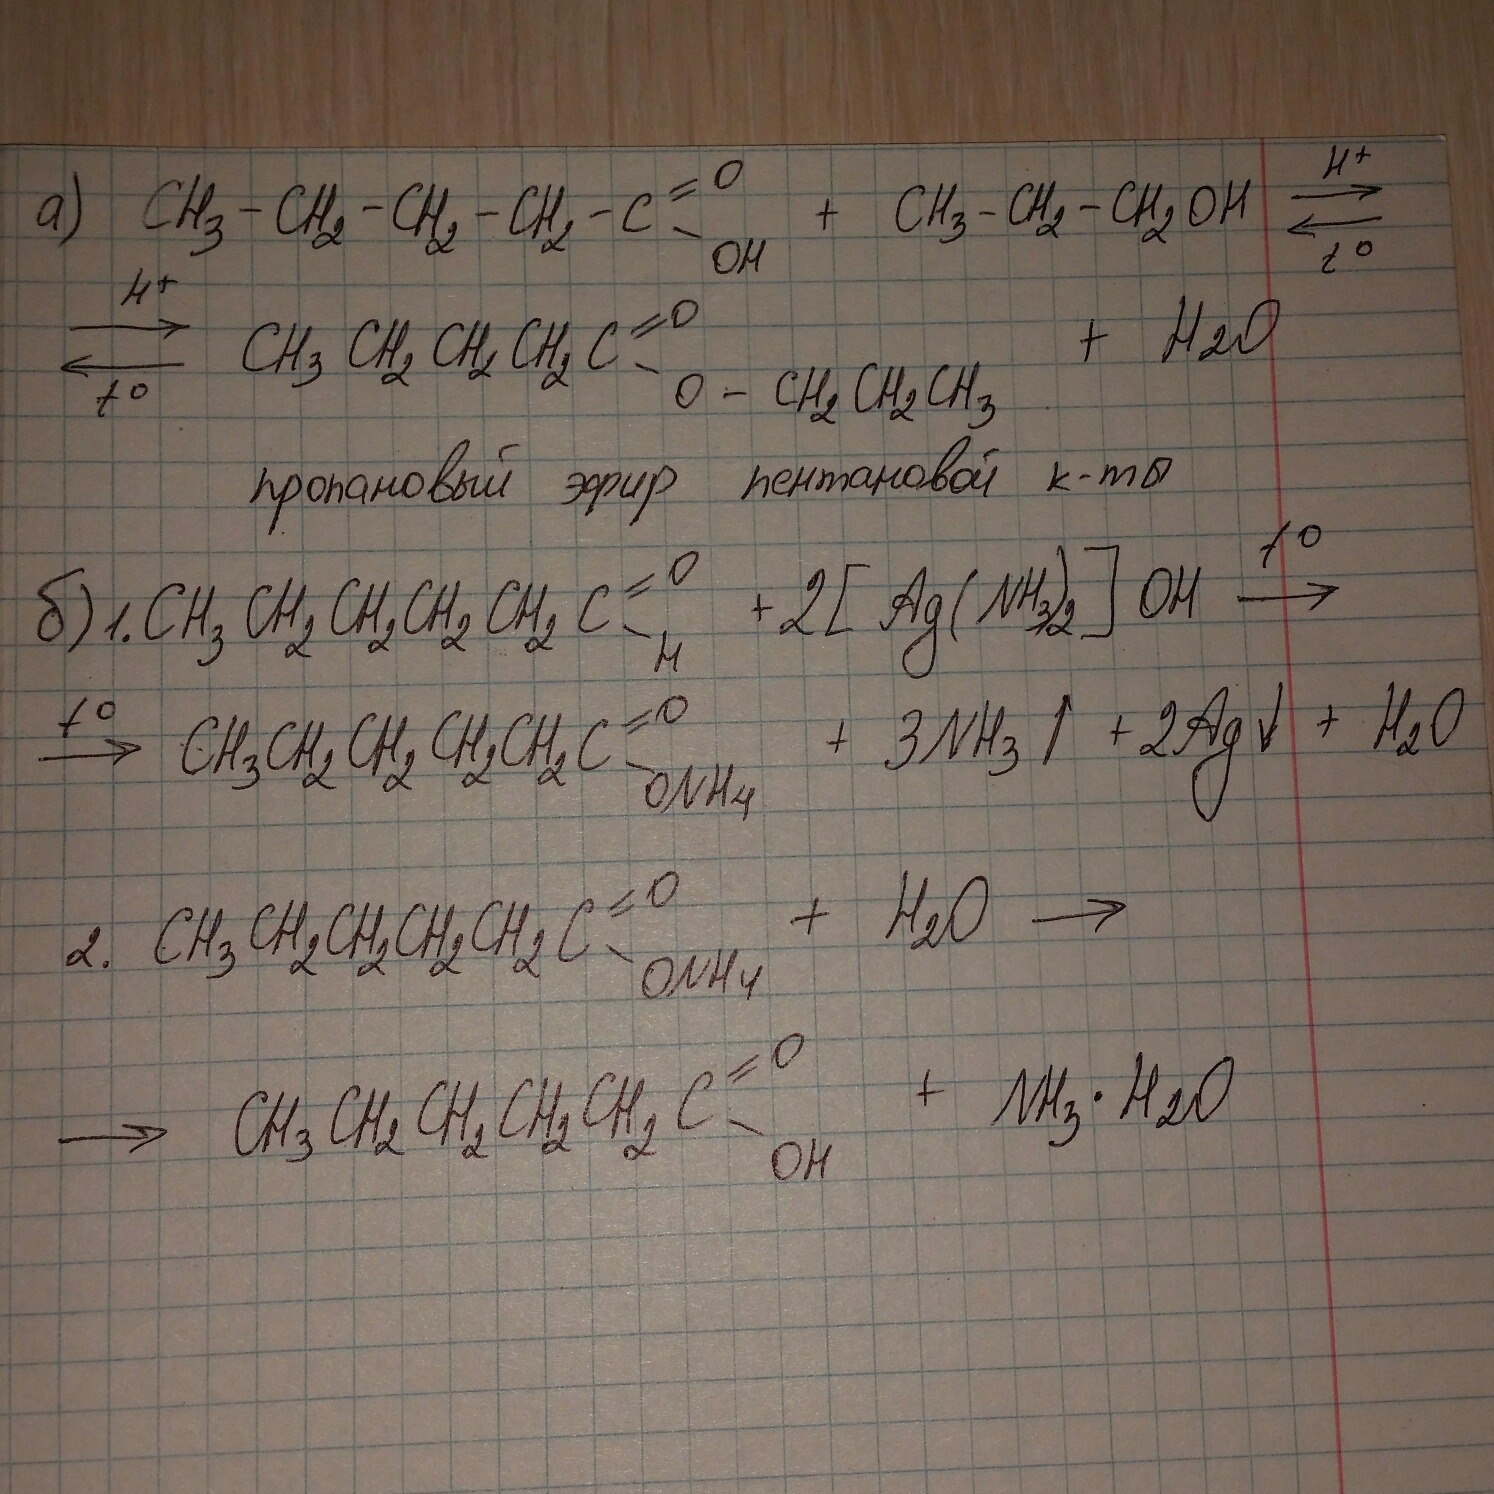 а) CH₃-CH₂-CH₂-CH₂-C(=O)-OH + CH₃-CH₂-CH₂OH ⇄ H⁺ t°
⇄ H⁺ t° CH₃CH₂CH₂CH₂C(=O)-O-CH₂CH₂CH₃ + H₂O
пропановый эфир пентановой к-ты
б) 1. CH₃CH₂CH₂CH₂CH₂C(=O)-H + 2[Ag(NH₃)₂]OH t° →
t° → CH₃CH₂CH₂CH₂CH₂C(=O)-ONH₄ + 3NH₃↑ + 2Ag↓ + H₂O
2. CH₃CH₂CH₂CH₂CH₂C(=O)-ONH₄ + H₂O →
→ CH₃CH₂CH₂CH₂CH₂C(=O)-OH + NH₃·H₂O